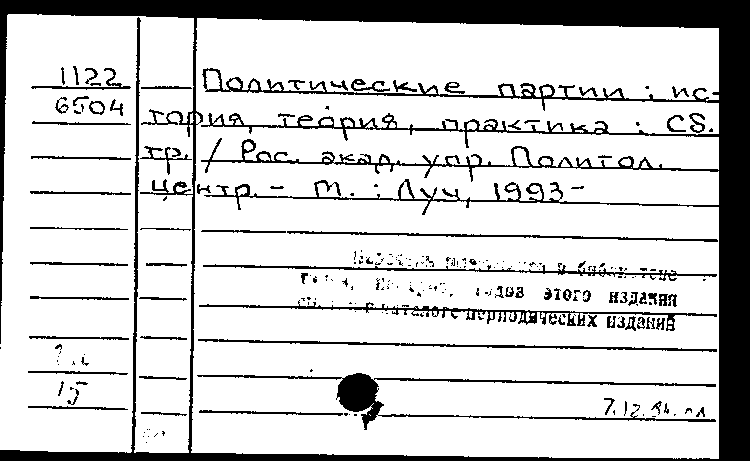 1122
6504
Политические партии : ис-
тория, теория, практика : Сб.
тр. / Рос. акад. упр. Политол.
центр. - М. : Луч, 1993-
в библиотеке
годов этого издания
в каталоге периодических изданий
15
7.12.94.